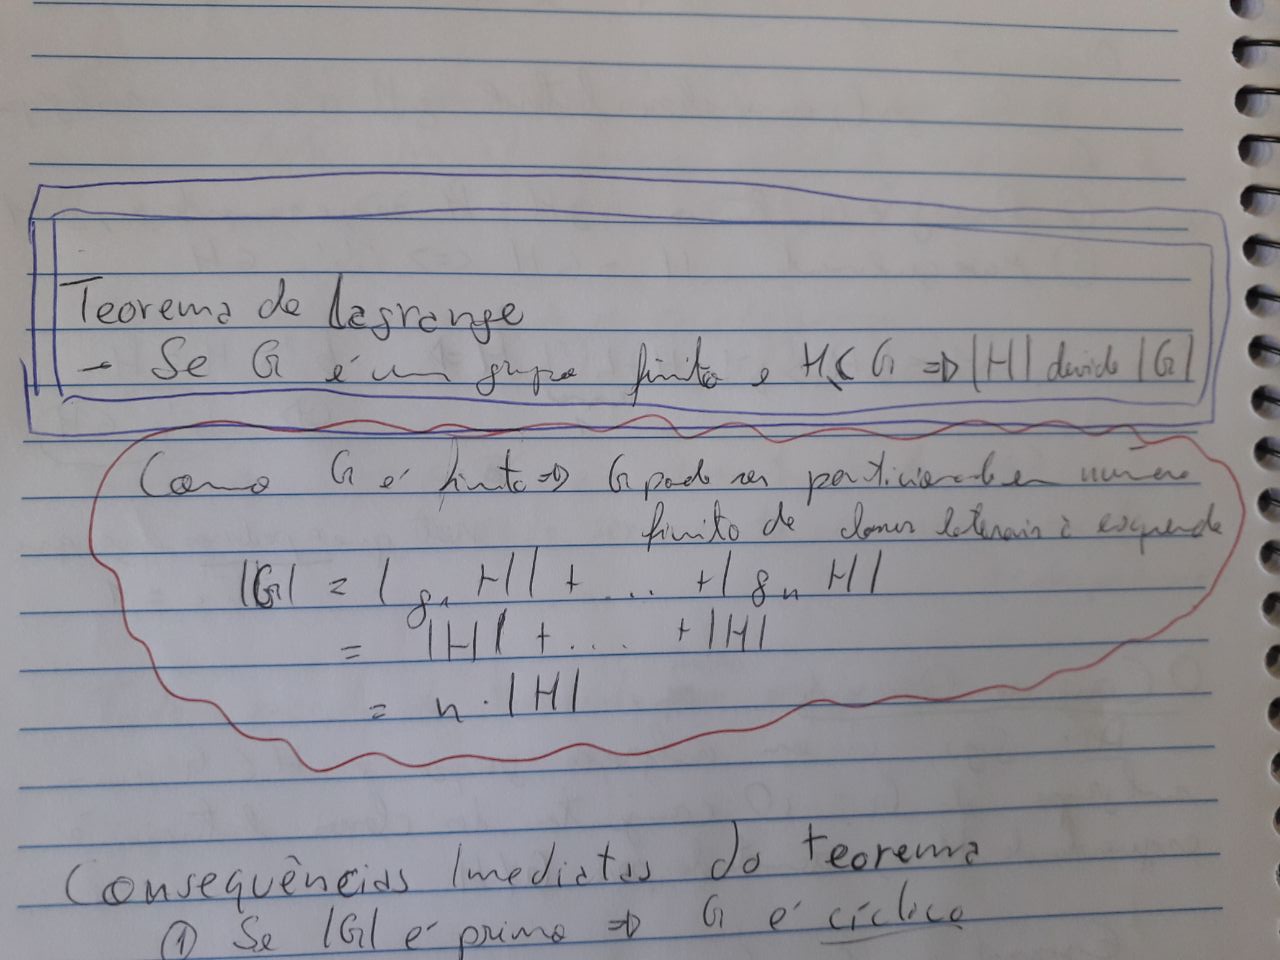 Teorema de Lagrange
- Se G é um grupo finito e H ≤ G ⇒ |H| divide |G|
Como G é finito ⇒ G pode ser particionado em número
finito de classes laterais à esquerda
|G| = |g₁H| + ... + |gₙH|
= |H| + .... + |H|
= n · |H|
Consequências Imediatas do teorema
① Se |G| é primo ⇒ G é cíclico